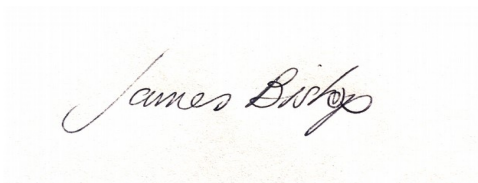 James Bishop